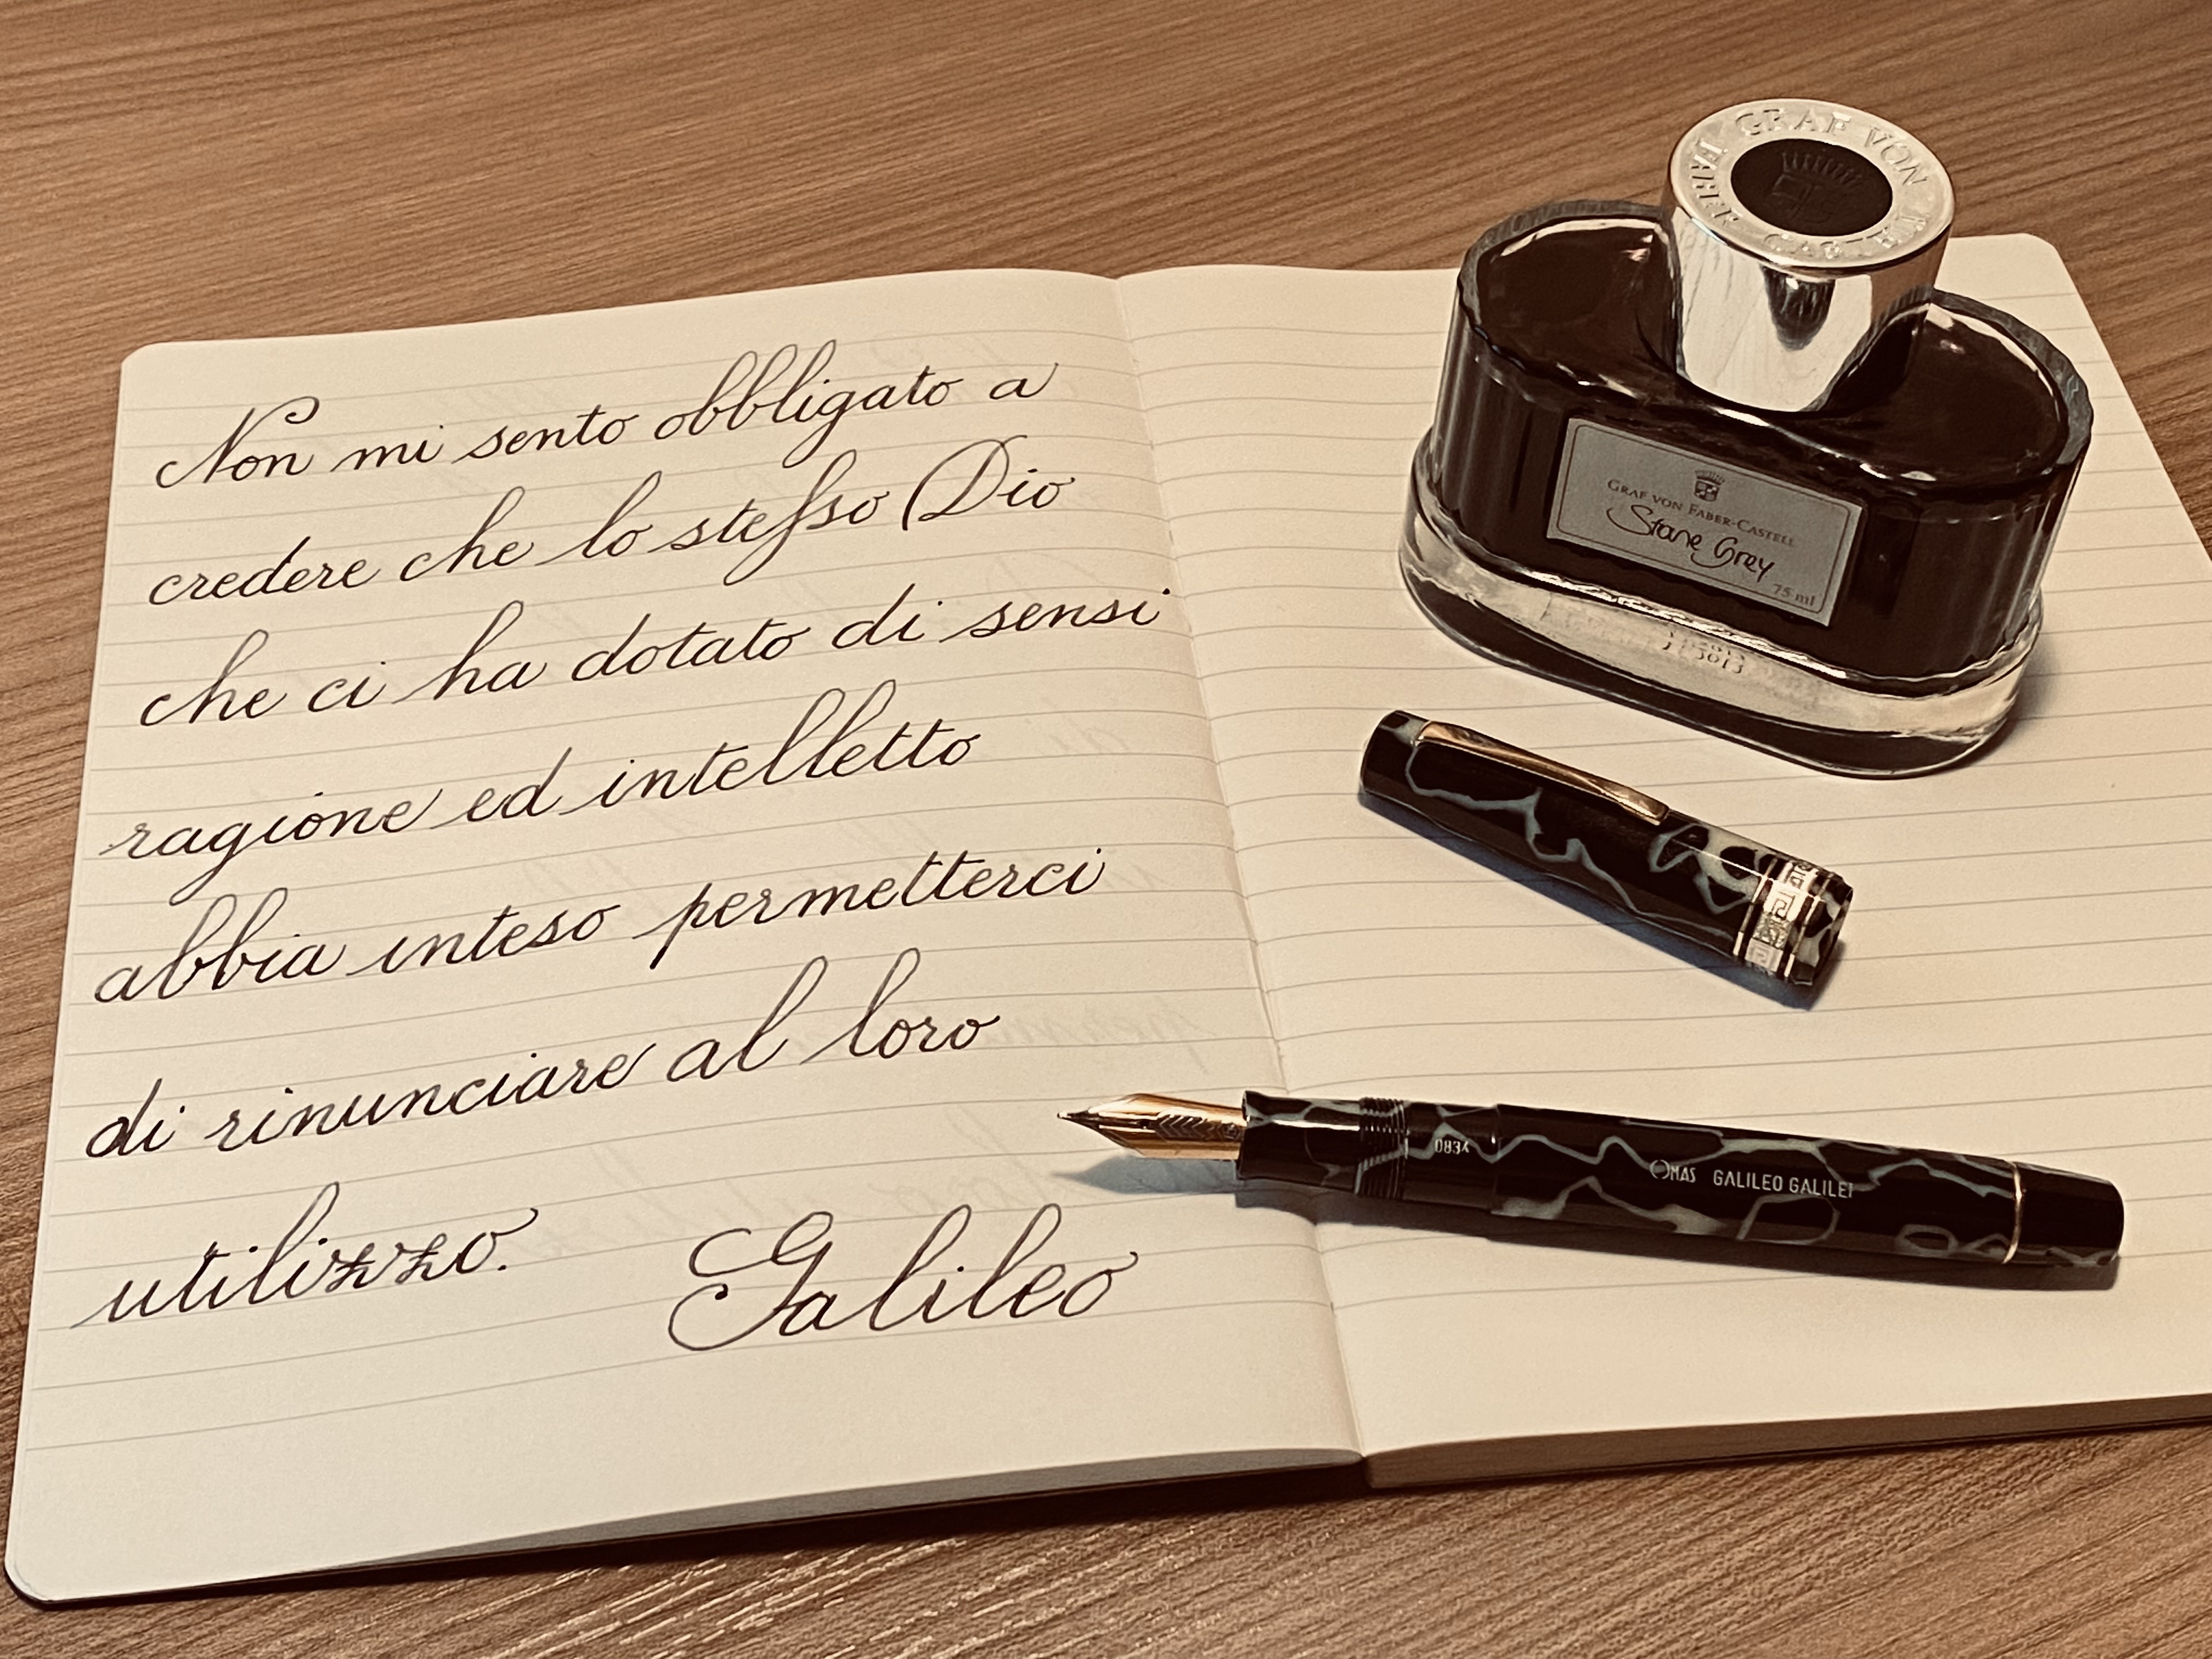 Non mi sento obbligato a
credere che lo steſso Dio
che ci ha dotato di sensi
ragione ed intelletto
abbia inteso permetterci
di rinunciare al loro
utilizzo.
Galileo
GRAF VON FABER CASTELL
GRAF VON FABER-CASTELL
Stone Grey
75 ml
0834
OMAS GALILEO GALILEI